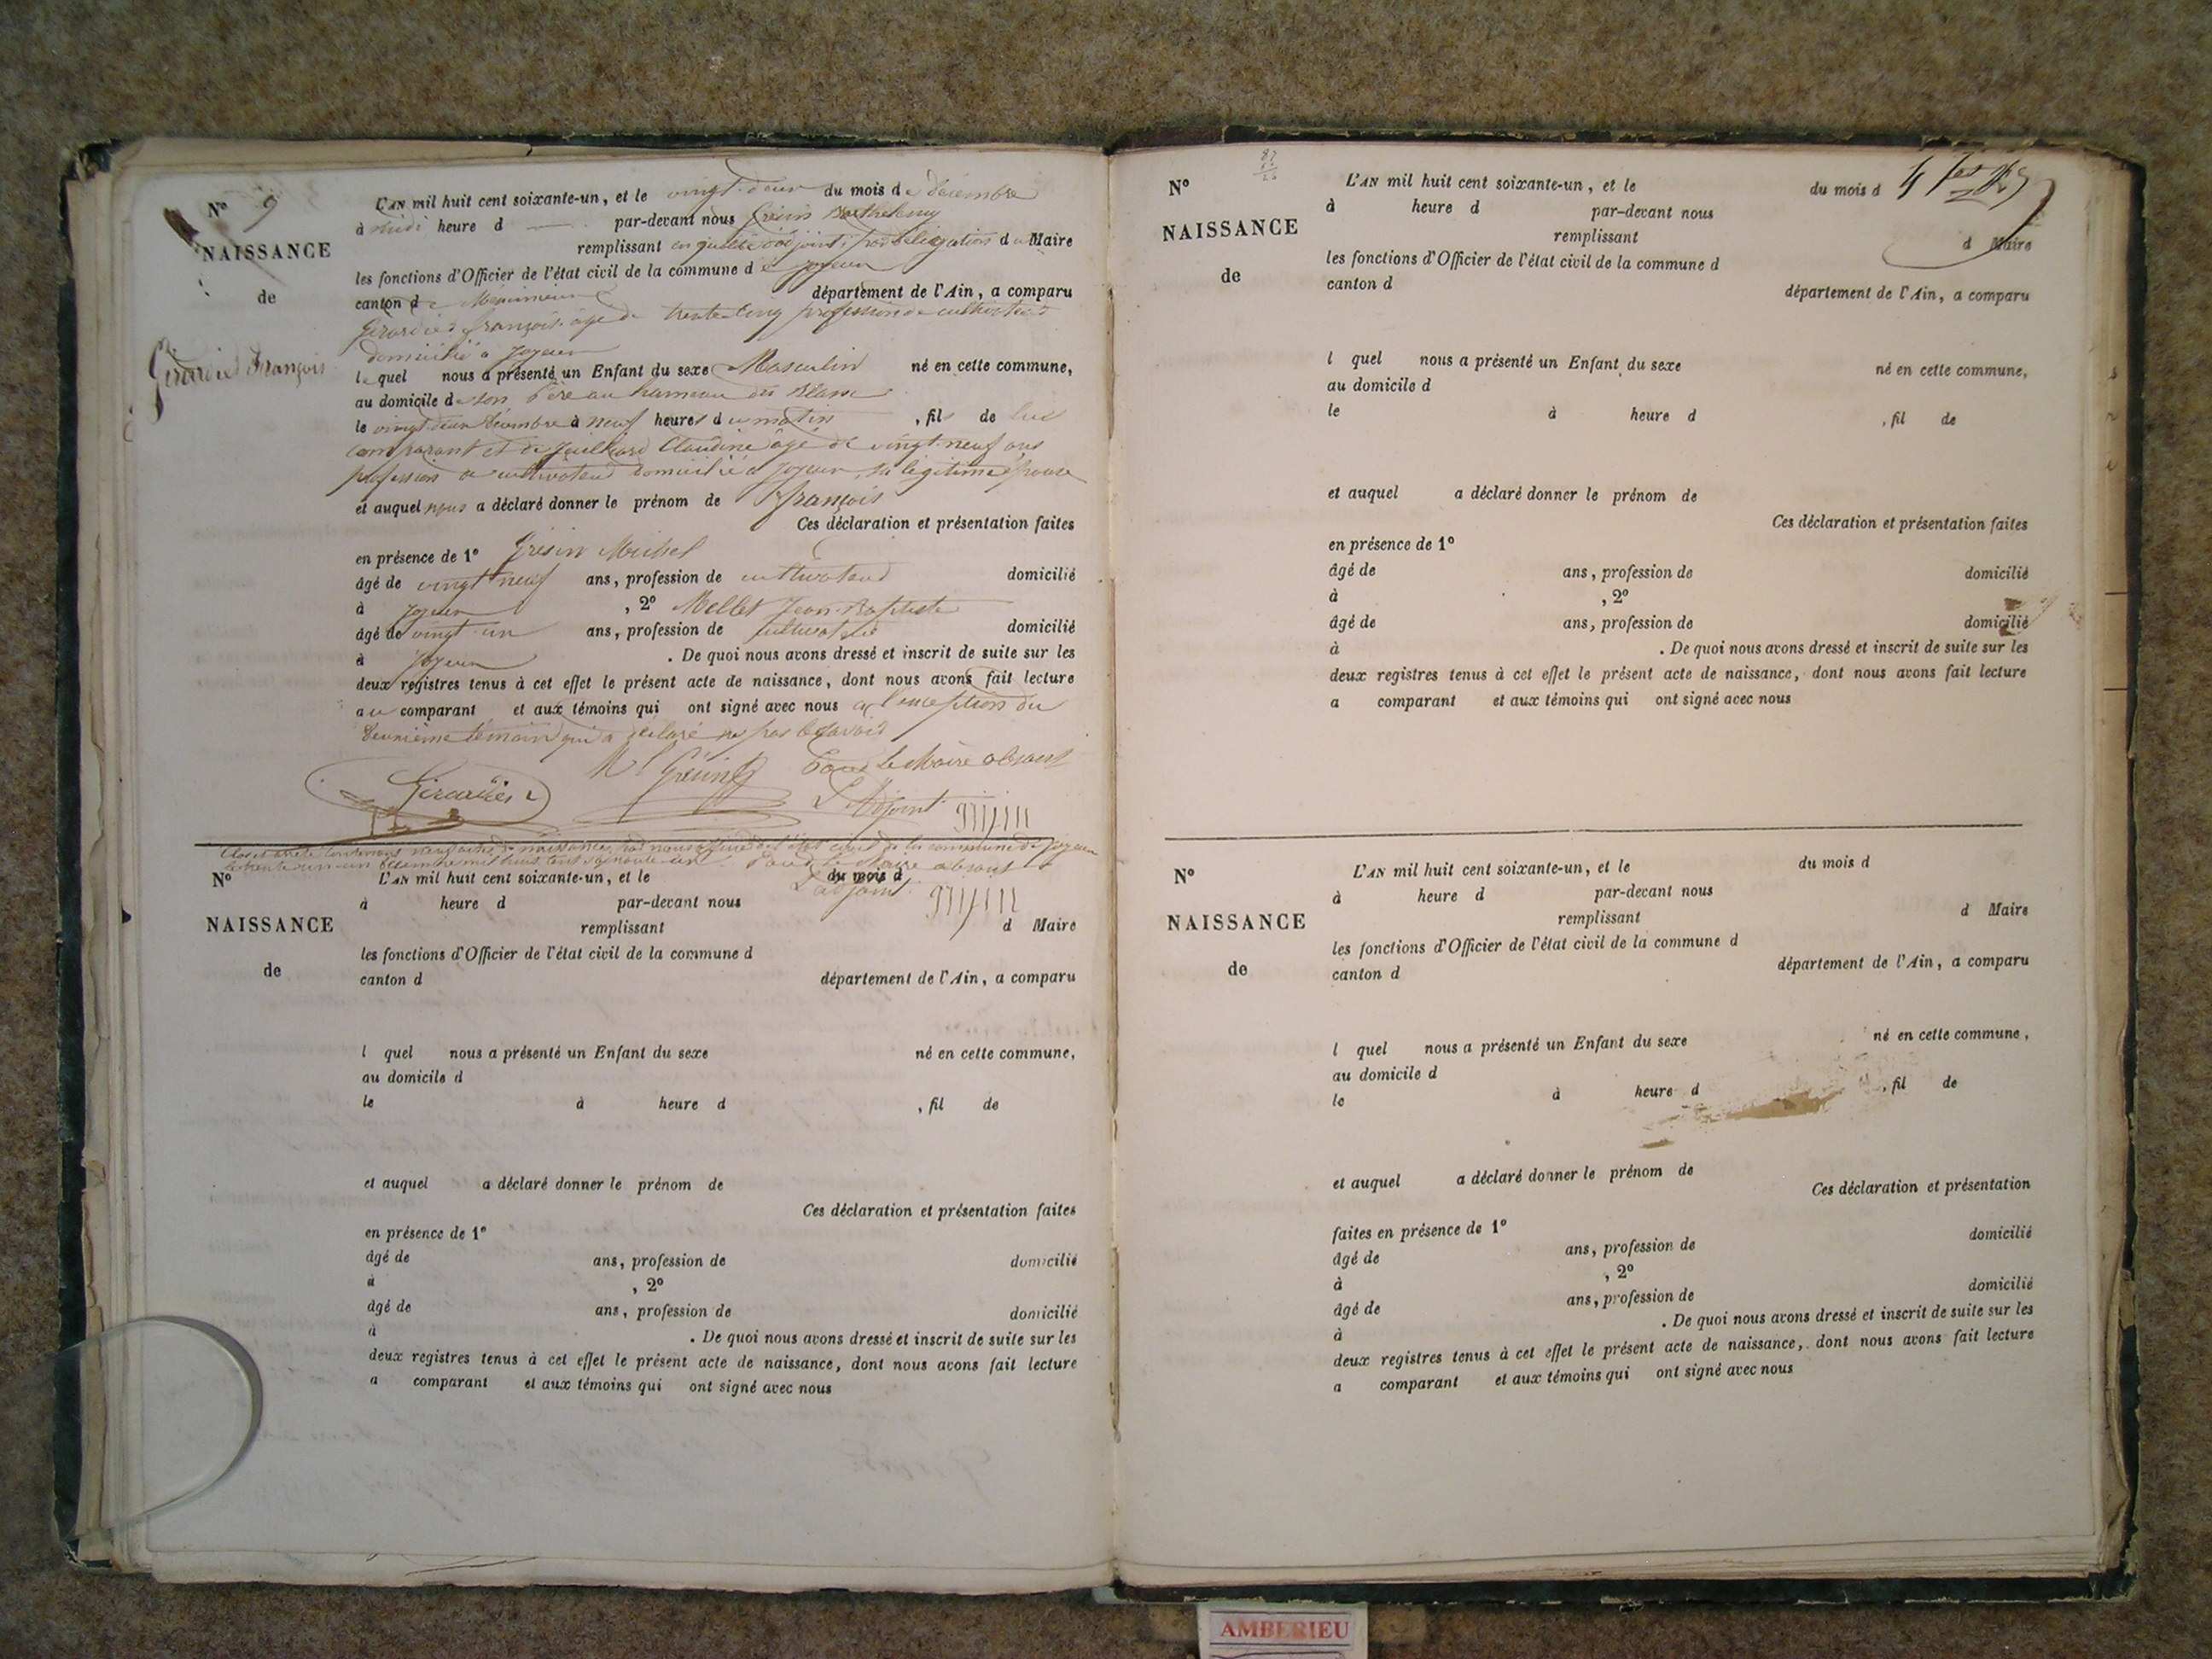 N° 9
NAISSANCE
de
Girardie François
L'AN mil huit cent soixante-un, et le vingt-deux du mois de décembre
à midi heure d — par-devant nous Grésin Barthelemy
remplissant en qualité d'adjoint, par délégation du Maire
les fonctions d'Officier de l'état civil de la commune de Joyeux
canton de Meximieux département de l'Ain, a comparu
Girardie François âgé de trente cinq profession de cultivateur
domicilié à Joyeux
lequel nous a présenté un Enfant du sexe Masculin né en cette commune,
au domicile de son Père au hameau des Blanc
le vingt deux décembre à neuf heures du matin, fils de lui
comparant et de Juilliard Claudine âgé de vingt-neuf ans
profession de cultivateur domicilié à Joyeux, sa légitime épouse
et auquel nous a déclaré donner le prénom de François
Ces déclaration et présentation faites
en présence de 1° Grésin Michel
âgé de vingt neuf ans, profession de cultivateur domicilié
à Joyeux, 2° Mollet Jean-Baptiste
âgé de vingt-un ans, profession de cultivateur domicilié
à Joyeux. De quoi nous avons dressé et inscrit de suite sur les
deux registres tenus à cet effet le présent acte de naissance, dont nous avons fait lecture
au comparant et aux témoins qui ont signé avec nous à l'exception du
deuxième témoin qui a déclaré ne pas le savoir
Girardie M Grésin Pour le Maire absent
L'Adjoint
Clos et arrêté contenant neuf actes de naissance par nous officier de l'état civil de la commune de Joyeux
le trente un décembre mil huit cent soixante un. Pour le Maire absent
L'adjoint
N°
NAISSANCE
de
L'AN mil huit cent soixante-un, et le du mois d
à heure d par-devant nous
remplissant d Maire
les fonctions d'Officier de l'état civil de la commune d
canton d département de l'Ain, a comparu
l quel nous a présenté un Enfant du sexe né en cette commune,
au domicile d
le à heure d , fil de
et auquel a déclaré donner le prénom de
Ces déclaration et présentation faites
en présence de 1°
âgé de ans, profession de domicilié
à , 2°
âgé de ans, profession de domicilié
à . De quoi nous avons dressé et inscrit de suite sur les
deux registres tenus à cet effet le présent acte de naissance, dont nous avons fait lecture
a comparant et aux témoins qui ont signé avec nous
N°
NAISSANCE
de
L'AN mil huit cent soixante-un, et le du mois d
à heure d par-devant nous
remplissant d Maire
les fonctions d'Officier de l'état civil de la commune d
canton d département de l'Ain, a comparu
l quel nous a présenté un Enfant du sexe né en cette commune,
au domicile d
le à heure d , fil de
et auquel a déclaré donner le prénom de
Ces déclaration et présentation faites
en présence de 1°
âgé de ans, profession de domicilié
à , 2°
âgé de ans, profession de domicilié
à . De quoi nous avons dressé et inscrit de suite sur les
deux registres tenus à cet effet le présent acte de naissance, dont nous avons fait lecture
a comparant et aux témoins qui ont signé avec nous
N°
NAISSANCE
de
L'AN mil huit cent soixante-un, et le du mois d
à heure d par-devant nous
remplissant d Maire
les fonctions d'Officier de l'état civil de la commune d
canton d département de l'Ain, a comparu
l quel nous a présenté un Enfant du sexe né en cette commune,
au domicile d
le à heure d , fil de
et auquel a déclaré donner le prénom de
Ces déclaration et présentation
faites en présence de 1°
âgé de ans, profession de domicilié
à , 2°
âgé de ans, profession de domicilié
à . De quoi nous avons dressé et inscrit de suite sur les
deux registres tenus à cet effet le présent acte de naissance, dont nous avons fait lecture
a comparant et aux témoins qui ont signé avec nous
AMBERIEU